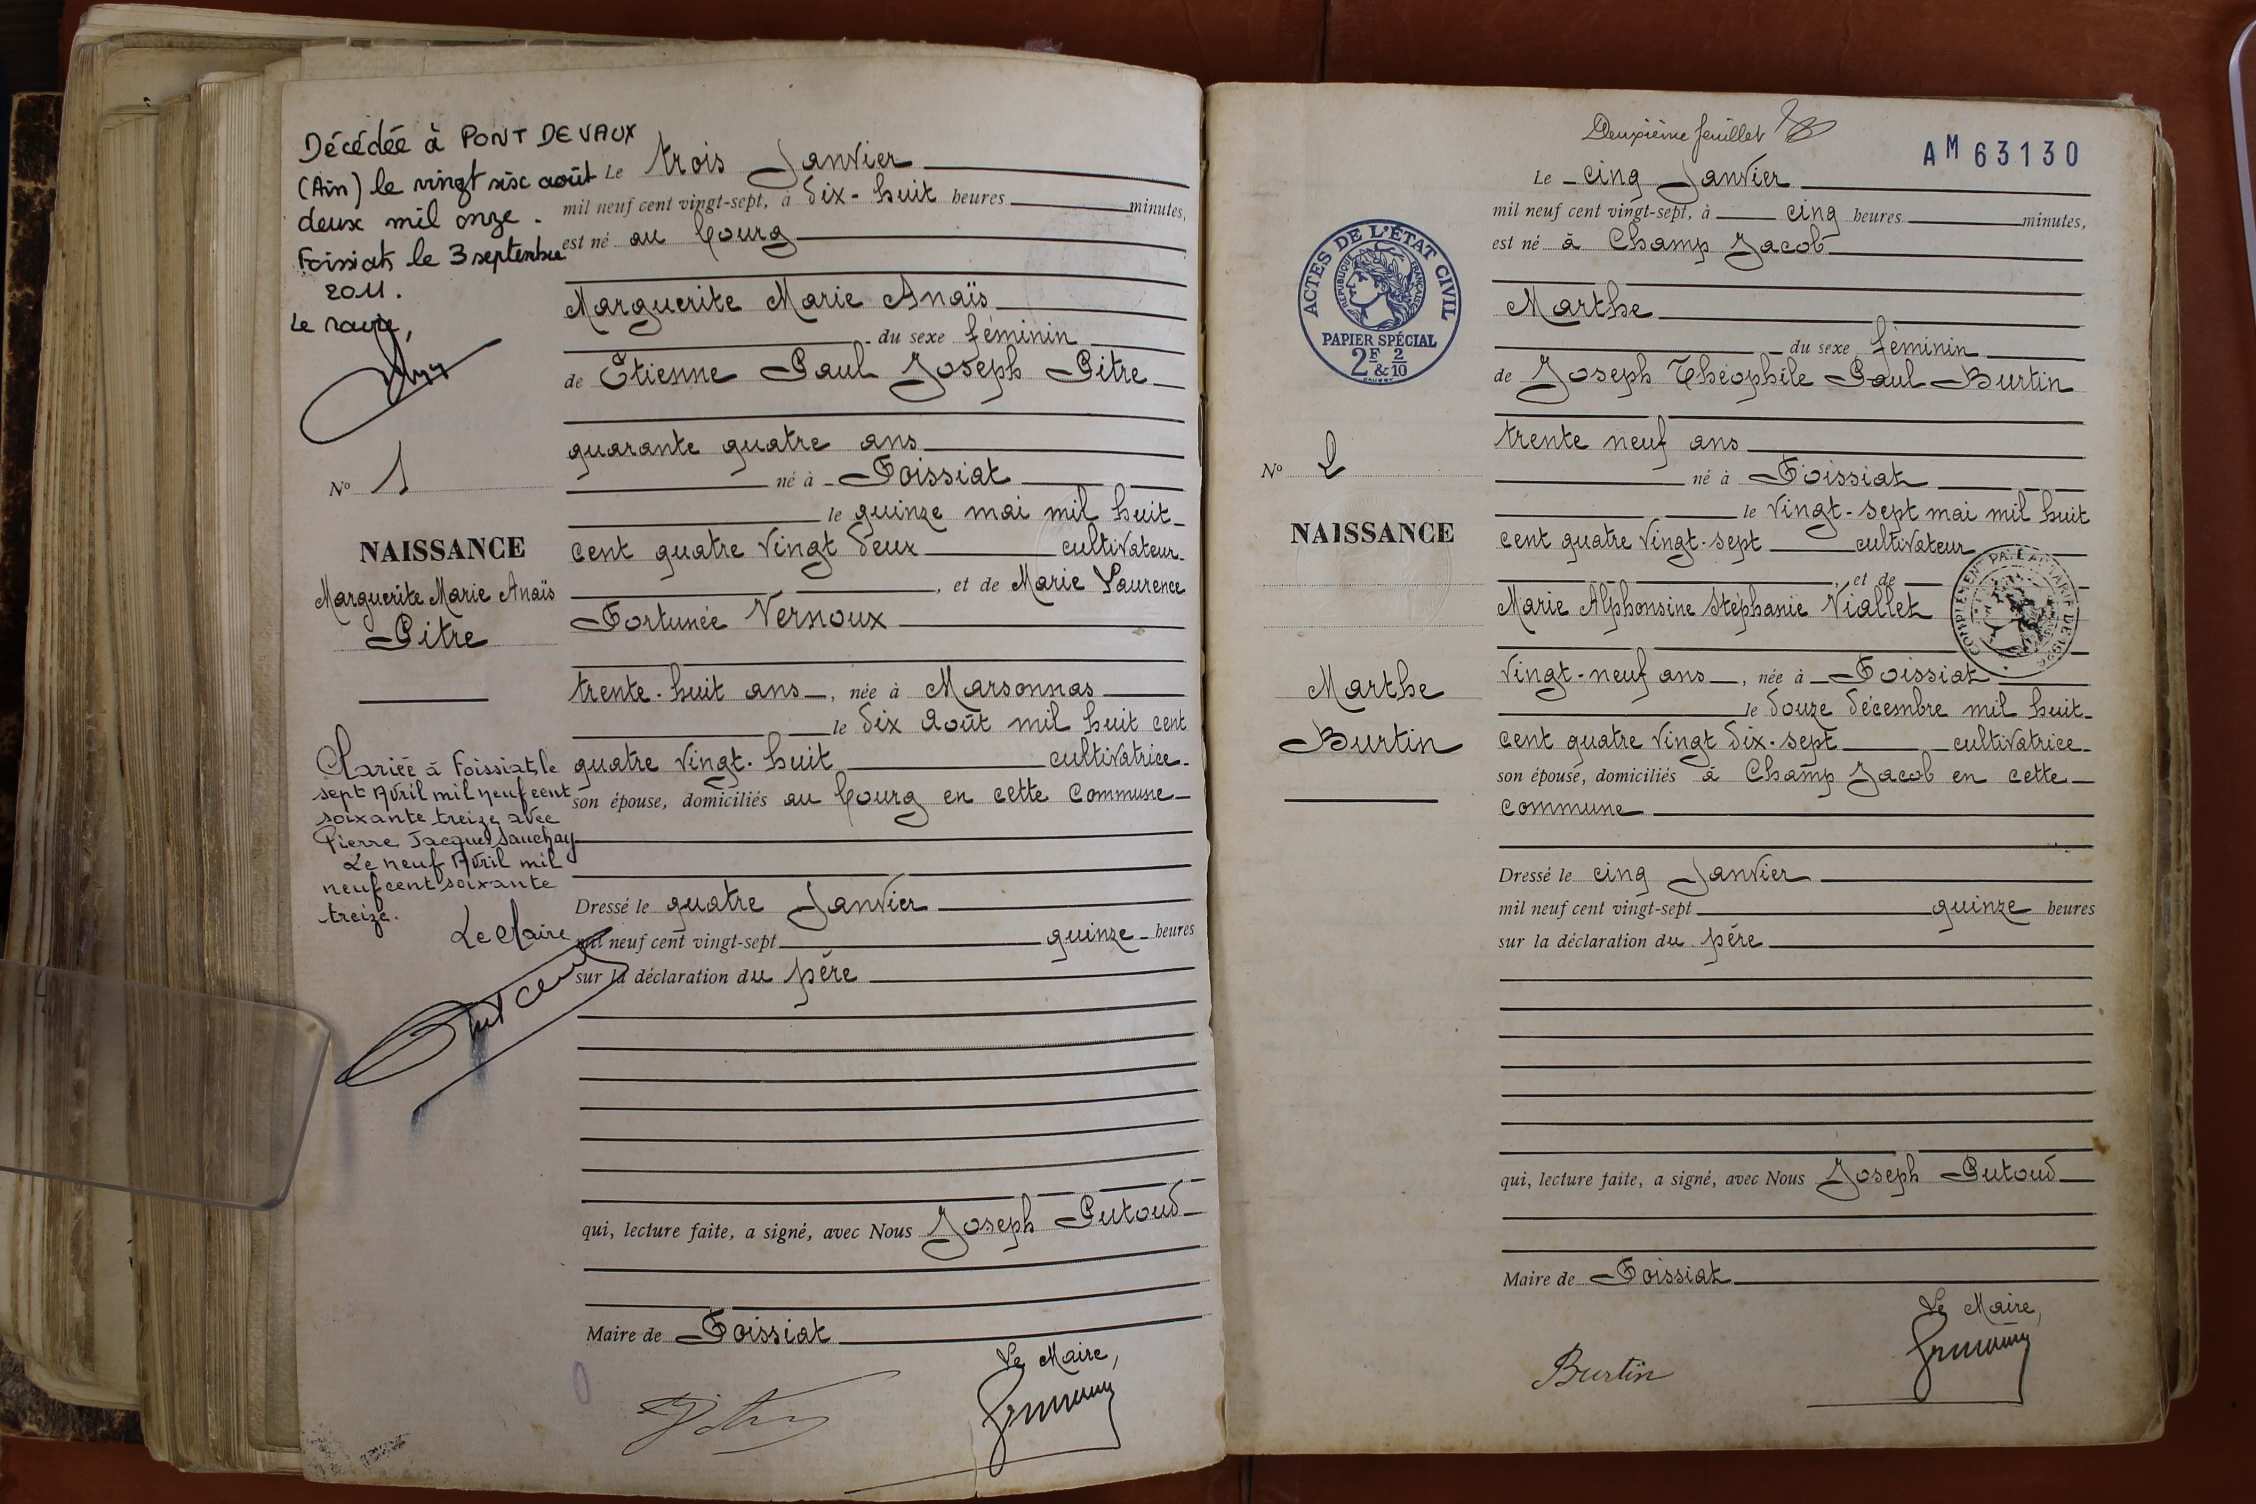 Décédée à PONT DE VAUX
(Ain) le vingt six août
deux mil onze.
Foissiat le 3 septembre
2011.
Le maire,
N° 1
NAISSANCE
Marguerite Marie Anaïs
Pitre
Mariée à Foissiat, le
sept Avril mil neuf cent
soixante treize avec
Pierre Jacques Sauchay
Le neuf Avril mil
neuf cent soixante
treize.
Le Maire
Le trois Janvier
mil neuf cent vingt-sept, à dix-huit heures minutes,
est né au bourg
Marguerite Marie Anaïs
du sexe féminin
de Etienne Paul Joseph Pitre
quarante quatre ans
né à Foissiat
le quinze mai mil huit
cent quatre vingt deux cultivateur
, et de Marie Laurence
Fortunée Vernoux
trente-huit ans, née à Marsonnas
le dix Août mil huit cent
quatre vingt-huit cultivatrice
son épouse, domiciliés au bourg en cette commune
Dressé le quatre Janvier
mil neuf cent vingt-sept quinze heures
sur la déclaration du père
qui, lecture faite, a signé, avec Nous Joseph Putoud
Maire de Foissiat
Le Maire,
Deuxième feuillet
AM 63130
ACTES DE L'ÉTAT CIVIL
RÉPUBLIQUE FRANÇAISE
PAPIER SPÉCIAL
2F & 2/10
N° 2
NAISSANCE
Marthe
Burtin
Le cinq Janvier
mil neuf cent vingt-sept, à cinq heures minutes,
est né à Champ Jacob
Marthe
du sexe féminin
de Joseph Théophile Paul Burtin
trente neuf ans
né à Foissiat
le vingt-sept mai mil huit
cent quatre vingt-sept cultivateur
, et de
Marie Alphonsine Stéphanie Viallet
vingt-neuf ans, née à Foissiat
le douze décembre mil huit
cent quatre vingt dix-sept cultivatrice
son épouse, domiciliés à Champ Jacob en cette
commune
Dressé le cinq Janvier
mil neuf cent vingt-sept quinze heures
sur la déclaration du père
qui, lecture faite, a signé, avec Nous Joseph Putoud
Maire de Foissiat
Le Maire,
Burtin